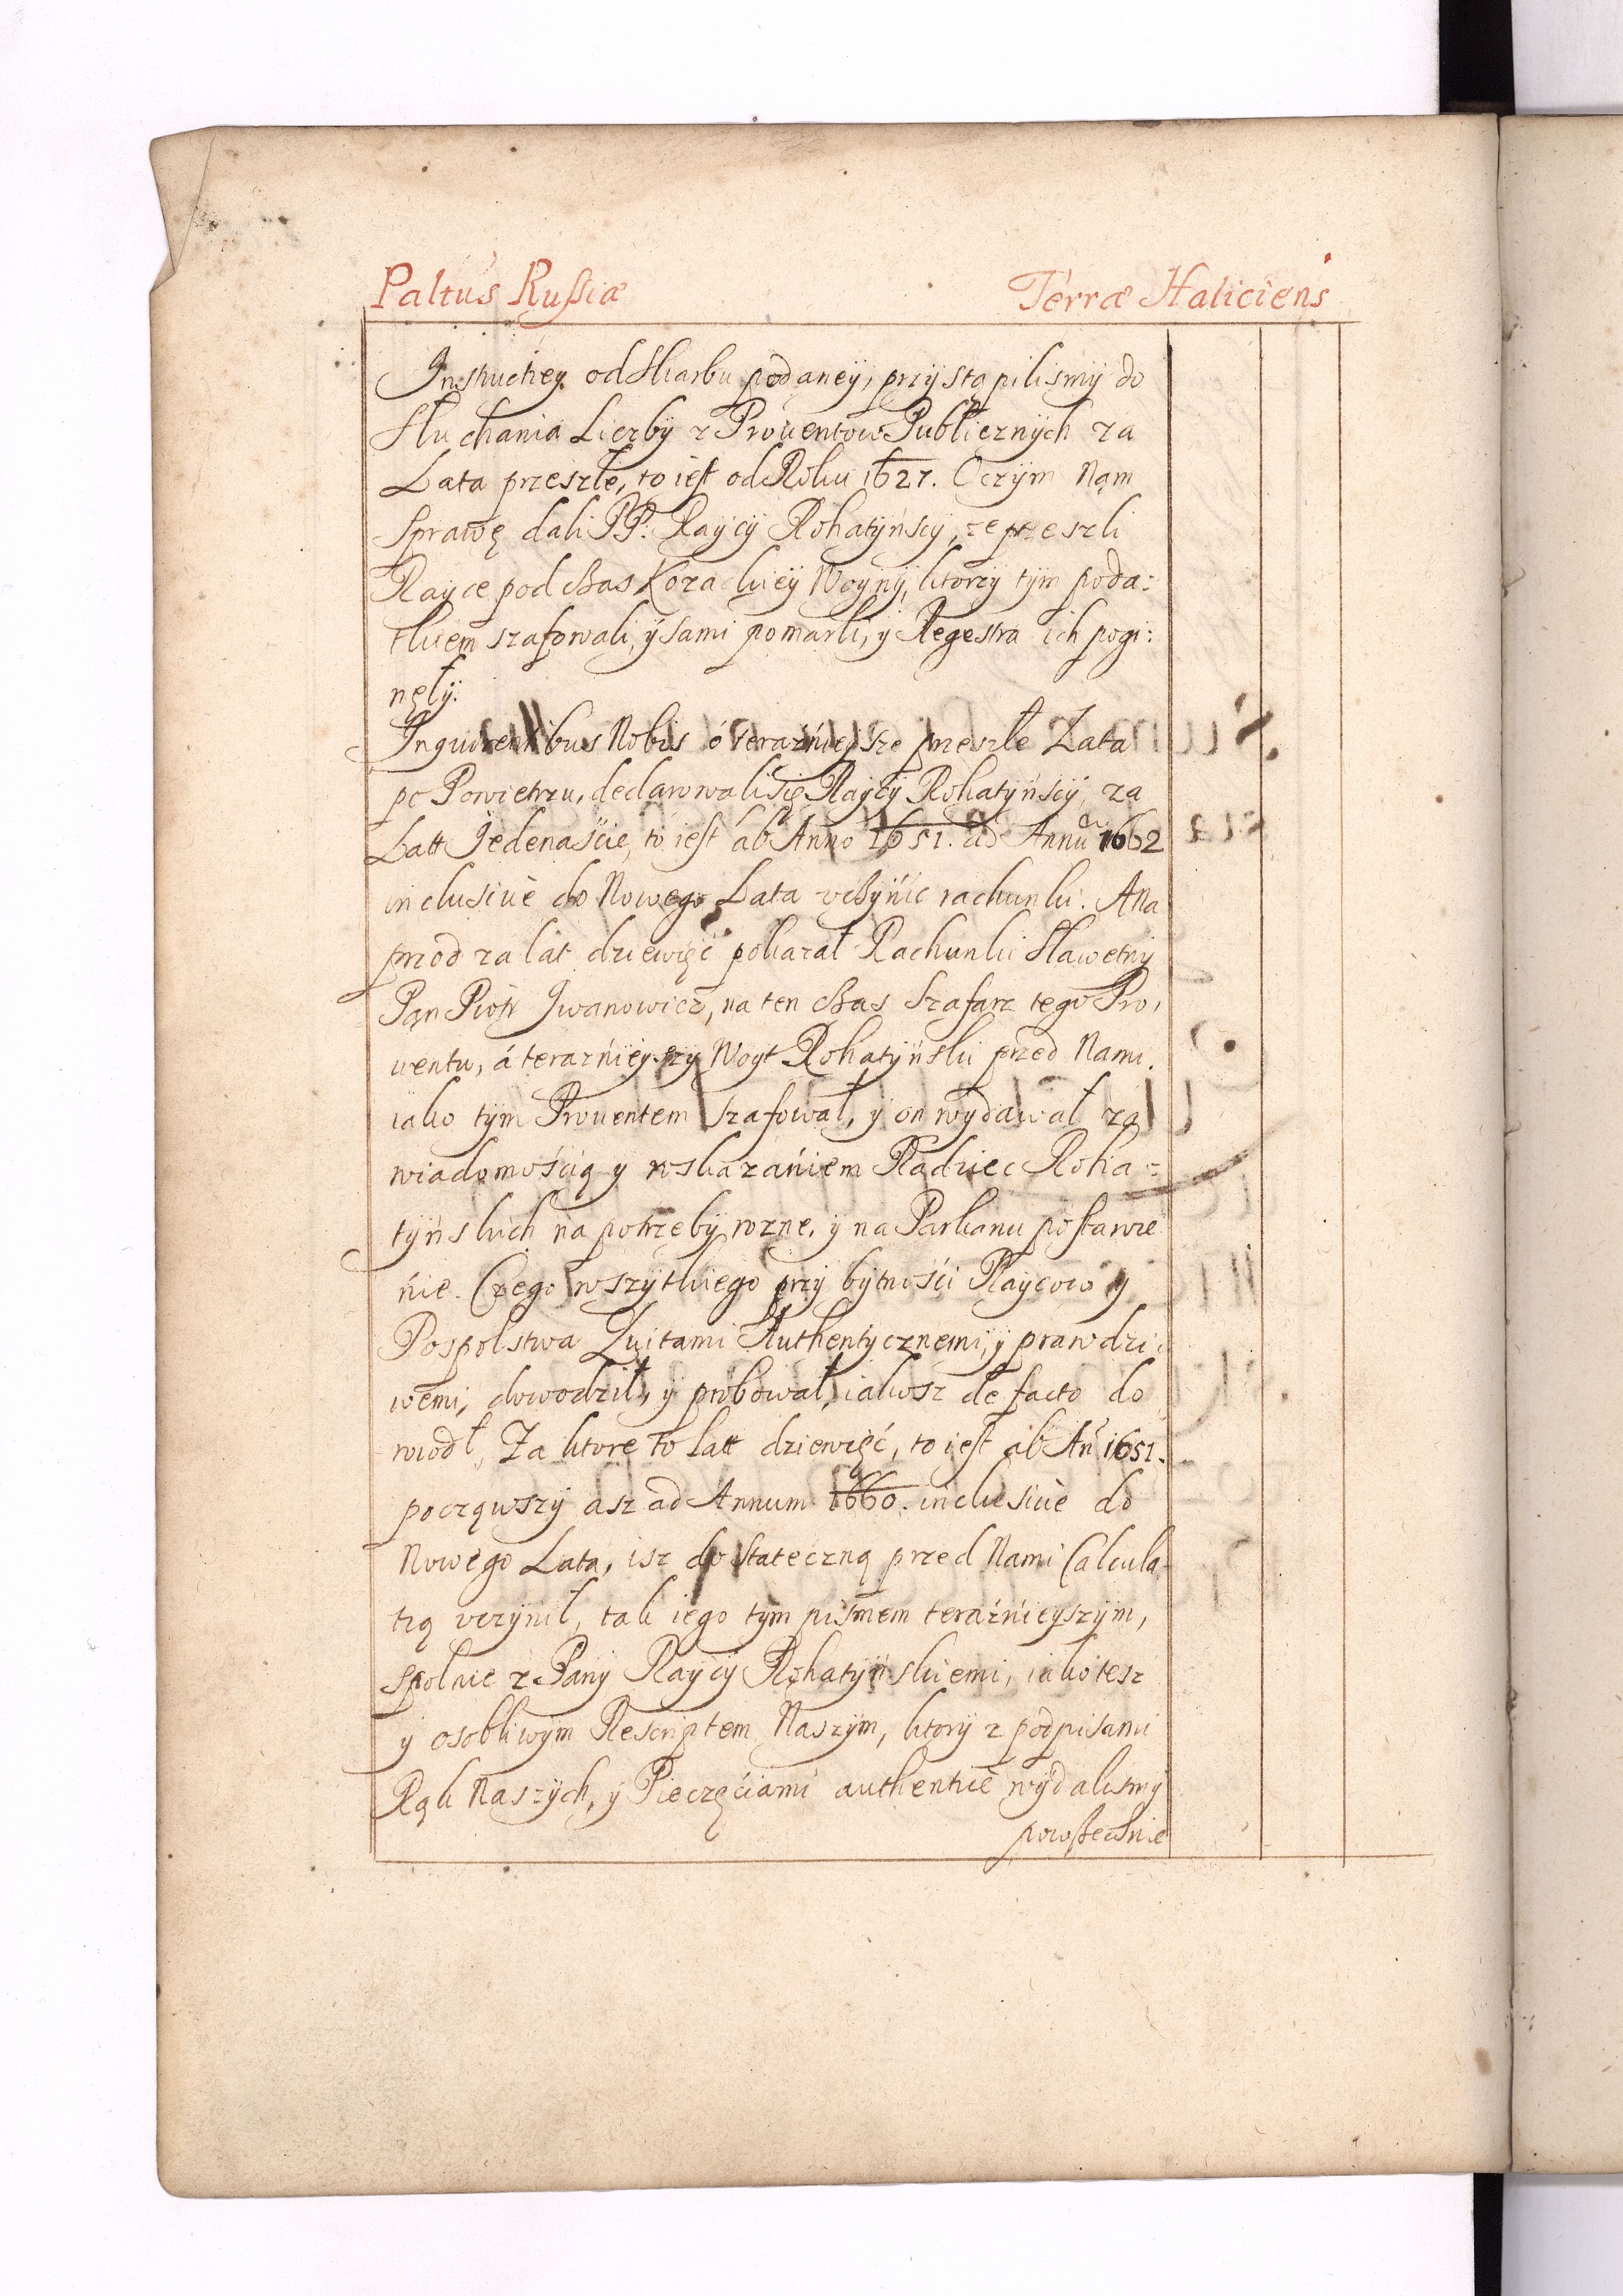 Paltus Rußiæ Terræ Haliciens
Instructiey od Skarbu podaney, przystąpilismy do
Słuchania Liczby z Prouentow Publicznych za
Lata przeszłe, to iest od Roku 1627. Oczym Nam
Sprawę dali PP: Raycy Rohatyńscy, ze przeszli
Rayce pod czas Kozackiey Woyny, ktorzy tym poda:
tkiem szafowali, y sami pomarli, y Regestra ich pogi:
nęły.
Inquirentibus Nobis o terazńieysze przeszłe Lata
po Powietrzu, declarowali się Raycy Rohatyńscy, za
Latt Jedenaście, to iest ab Anno 1651. ad Annū 1662
inclusiuè do Nowego Lata vczynic rachunki. A na
przod za lat dziewięć pokazał Rachunki Sławetny
Pan Piotr Jwanowicz, na ten czas Szafarz tego Pro,
uentu, á terazńieyszy Woyt Rohatyński przed Nami.
iako tym Prouentem szafował, y on wydawał za
wiadomością y wskazániem Radziec Roha=
tyńskich na potrzeby rozne, y na Parkanu postawie
nie. Czego wszytkiego przy bytności Raycow y
Pospolstwa Quitami Authentycznemi, y prawdzi
wemi, dowodził, y probował, iakosz de facto do
wiodł, Za ktore to latt dziewięć, to iest ab An̄ 1651.
począwszy asz ad Annum 1660. inclusiuè do
Nowego Lata, isz dostateczną przed Nami Calcula
tią vczynił, tak iego tym pismem teraźńieyszym,
spolnie z Pany Raycy Rohatyńskiemi, iako tesz
y osobliwym Rescriptem Naszym, ktory z podpisami
Rąk Naszych, y Pieczęciami authenticè wydalismy
powszechnie